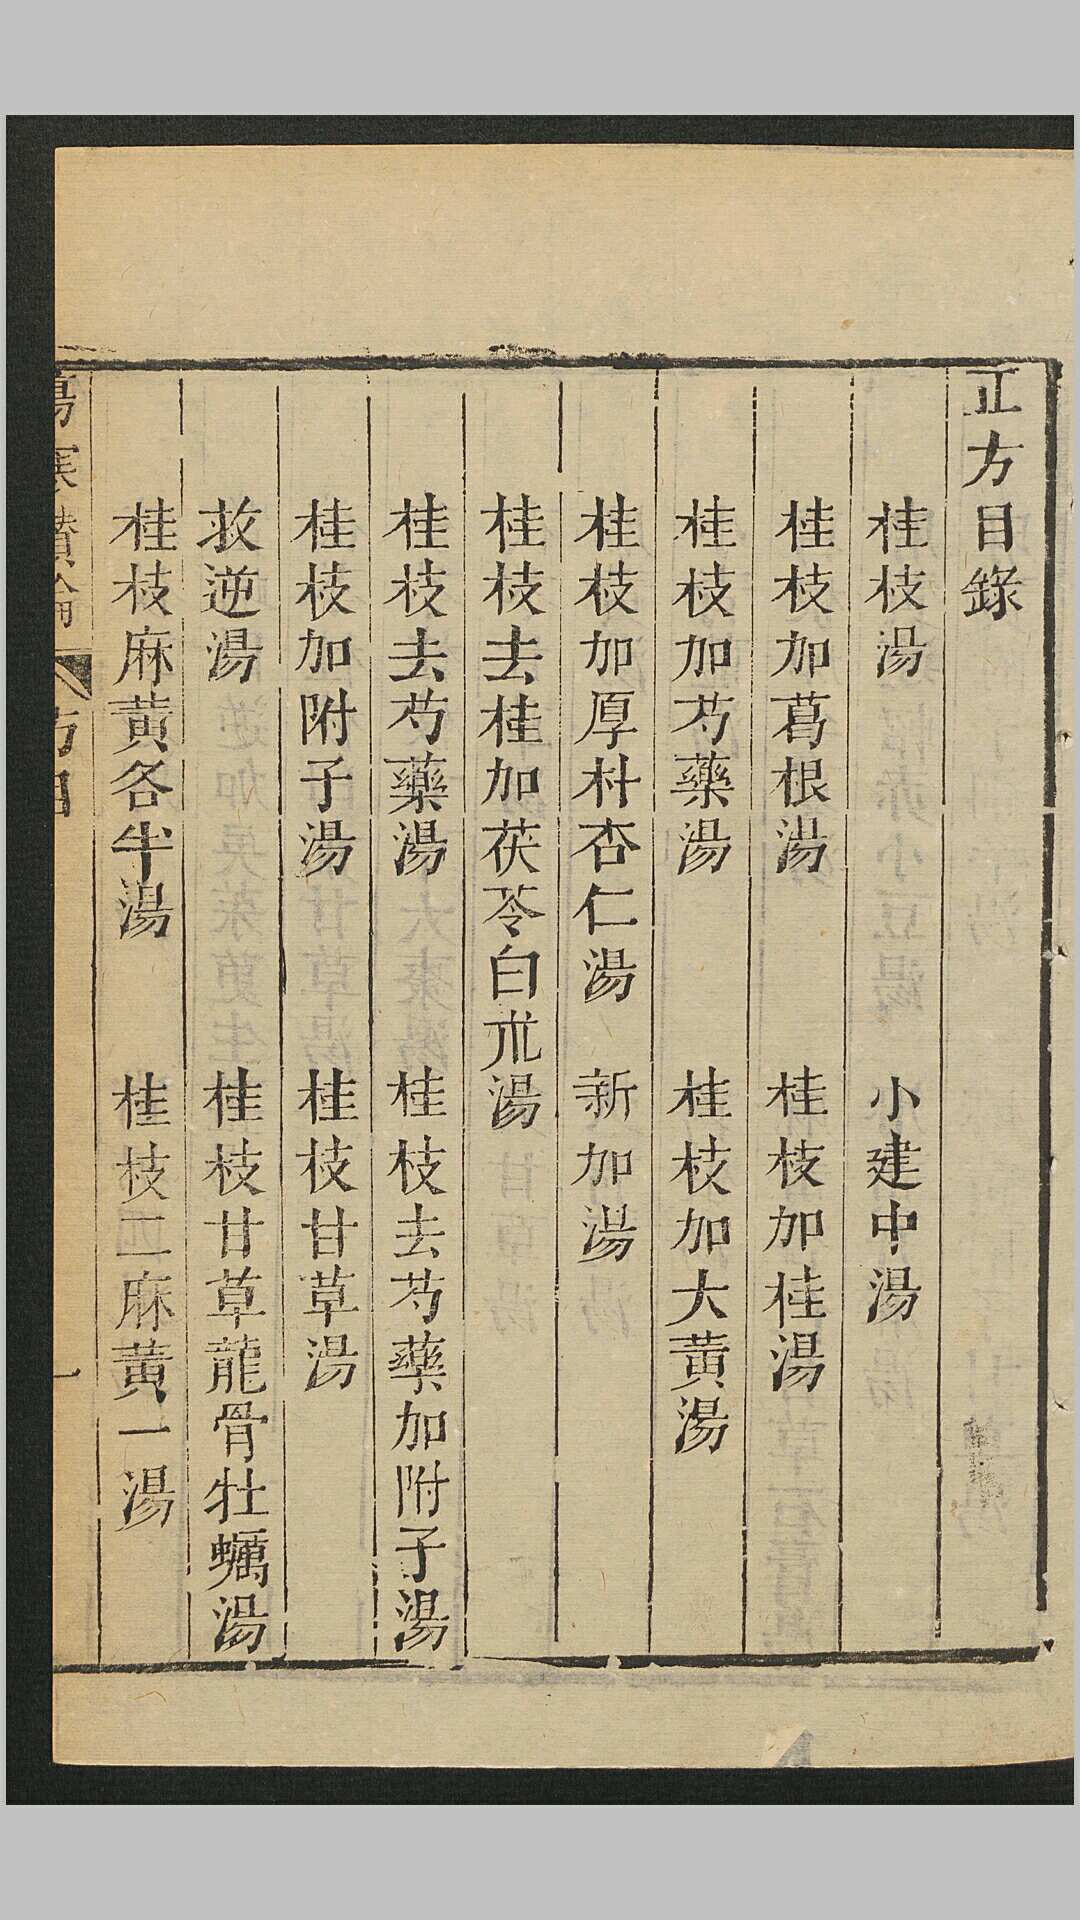 正方目錄
桂枝湯 小建中湯
桂枝加葛根湯 桂枝加桂湯
桂枝加芍藥湯 桂枝加大黃湯
桂枝加厚朴杏仁湯 新加湯
桂枝去桂加茯苓白朮湯
桂枝去芍藥湯 桂枝去芍藥加附子湯
桂枝加附子湯 桂枝甘草湯
救逆湯 桂枝甘草龍骨牡蠣湯
桂枝麻黃各半湯 桂枝二麻黃一湯
傷寒纘論 方目 一